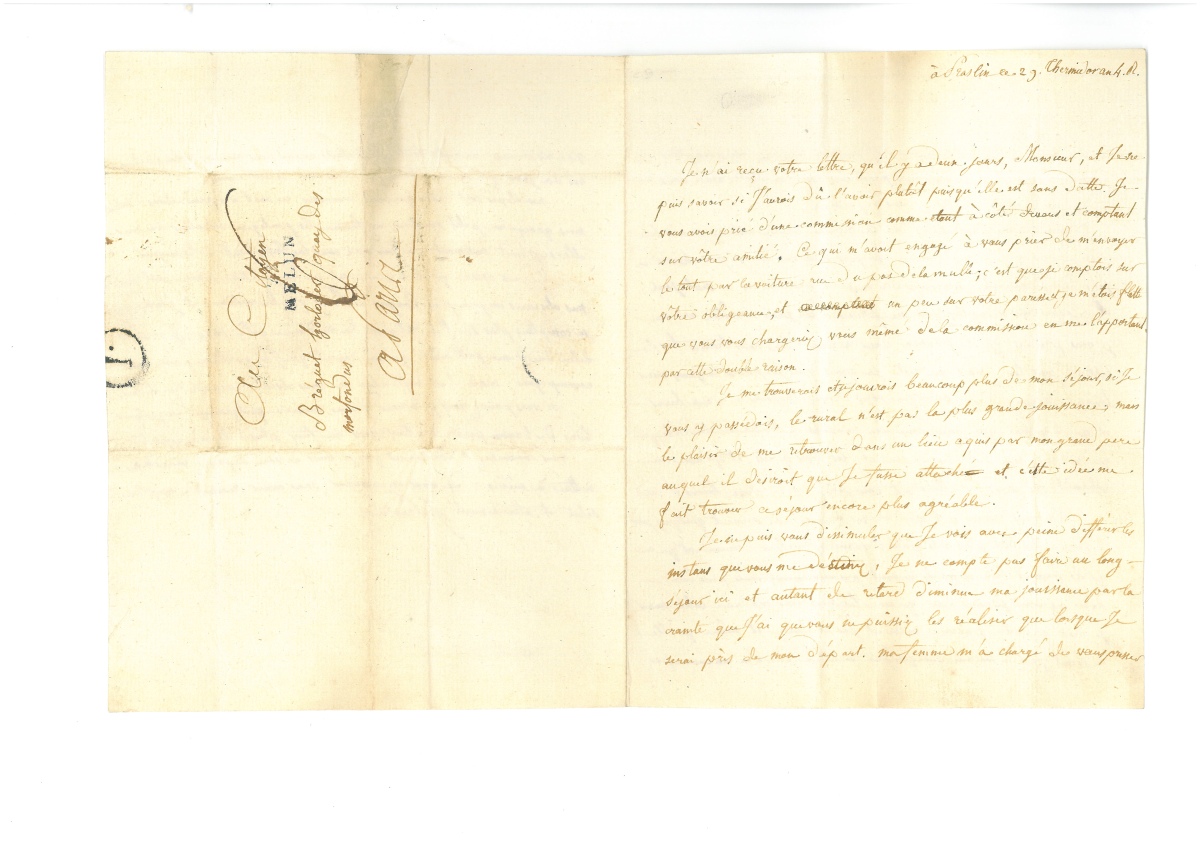 Au Citoyen
Breguet horloger quay des
morfondus
A Paris
MELUN
à Praslin ce 29. Thermidor an 4. R.
Je n'ai reçu votre lettre, qu'il y a deux jours, Monsieur, et Je ne
puis savoir si J'aurois dû l'avoir plutôt puisqu'elle est sans datte. Je
vous avois prié d'une commission comme étant à côté de vous et comptant
sur vôtre amitié. Ce qui m'avoit engagé à vous prier de m'envoyer
le tout par la voiture rue du pas de la mulle; c'est que je comptois sur
votre obligeance, et un peu sur votre paresse et je m'étois flatté
que vous vous chargeriez vous même de la commission en me l'apportant
par cette double raison.
Je me trouverais et jouirois beaucoup plus de mon séjour, si Je
vous y possédois, le rural n'est pas la plus grande jouissance, mais
le plaisir de me retrouver dans un lieu aquis par mon grand pere
auquel il desiroit que Je fusse attaché et cette idée me
fait trouver ce séjour encore plus agréable.
Je ne puis vous dissimuler que Je vois avec peine différer les
instans que vous me destiniez, Je ne compte pas faire un long
séjour ici et autant de retard diminue ma jouissance par la
crainte que J'ai que vous ne puissiez les réaliser que lorsque Je
serai près de mon départ. ma femme m'a chargé de vous